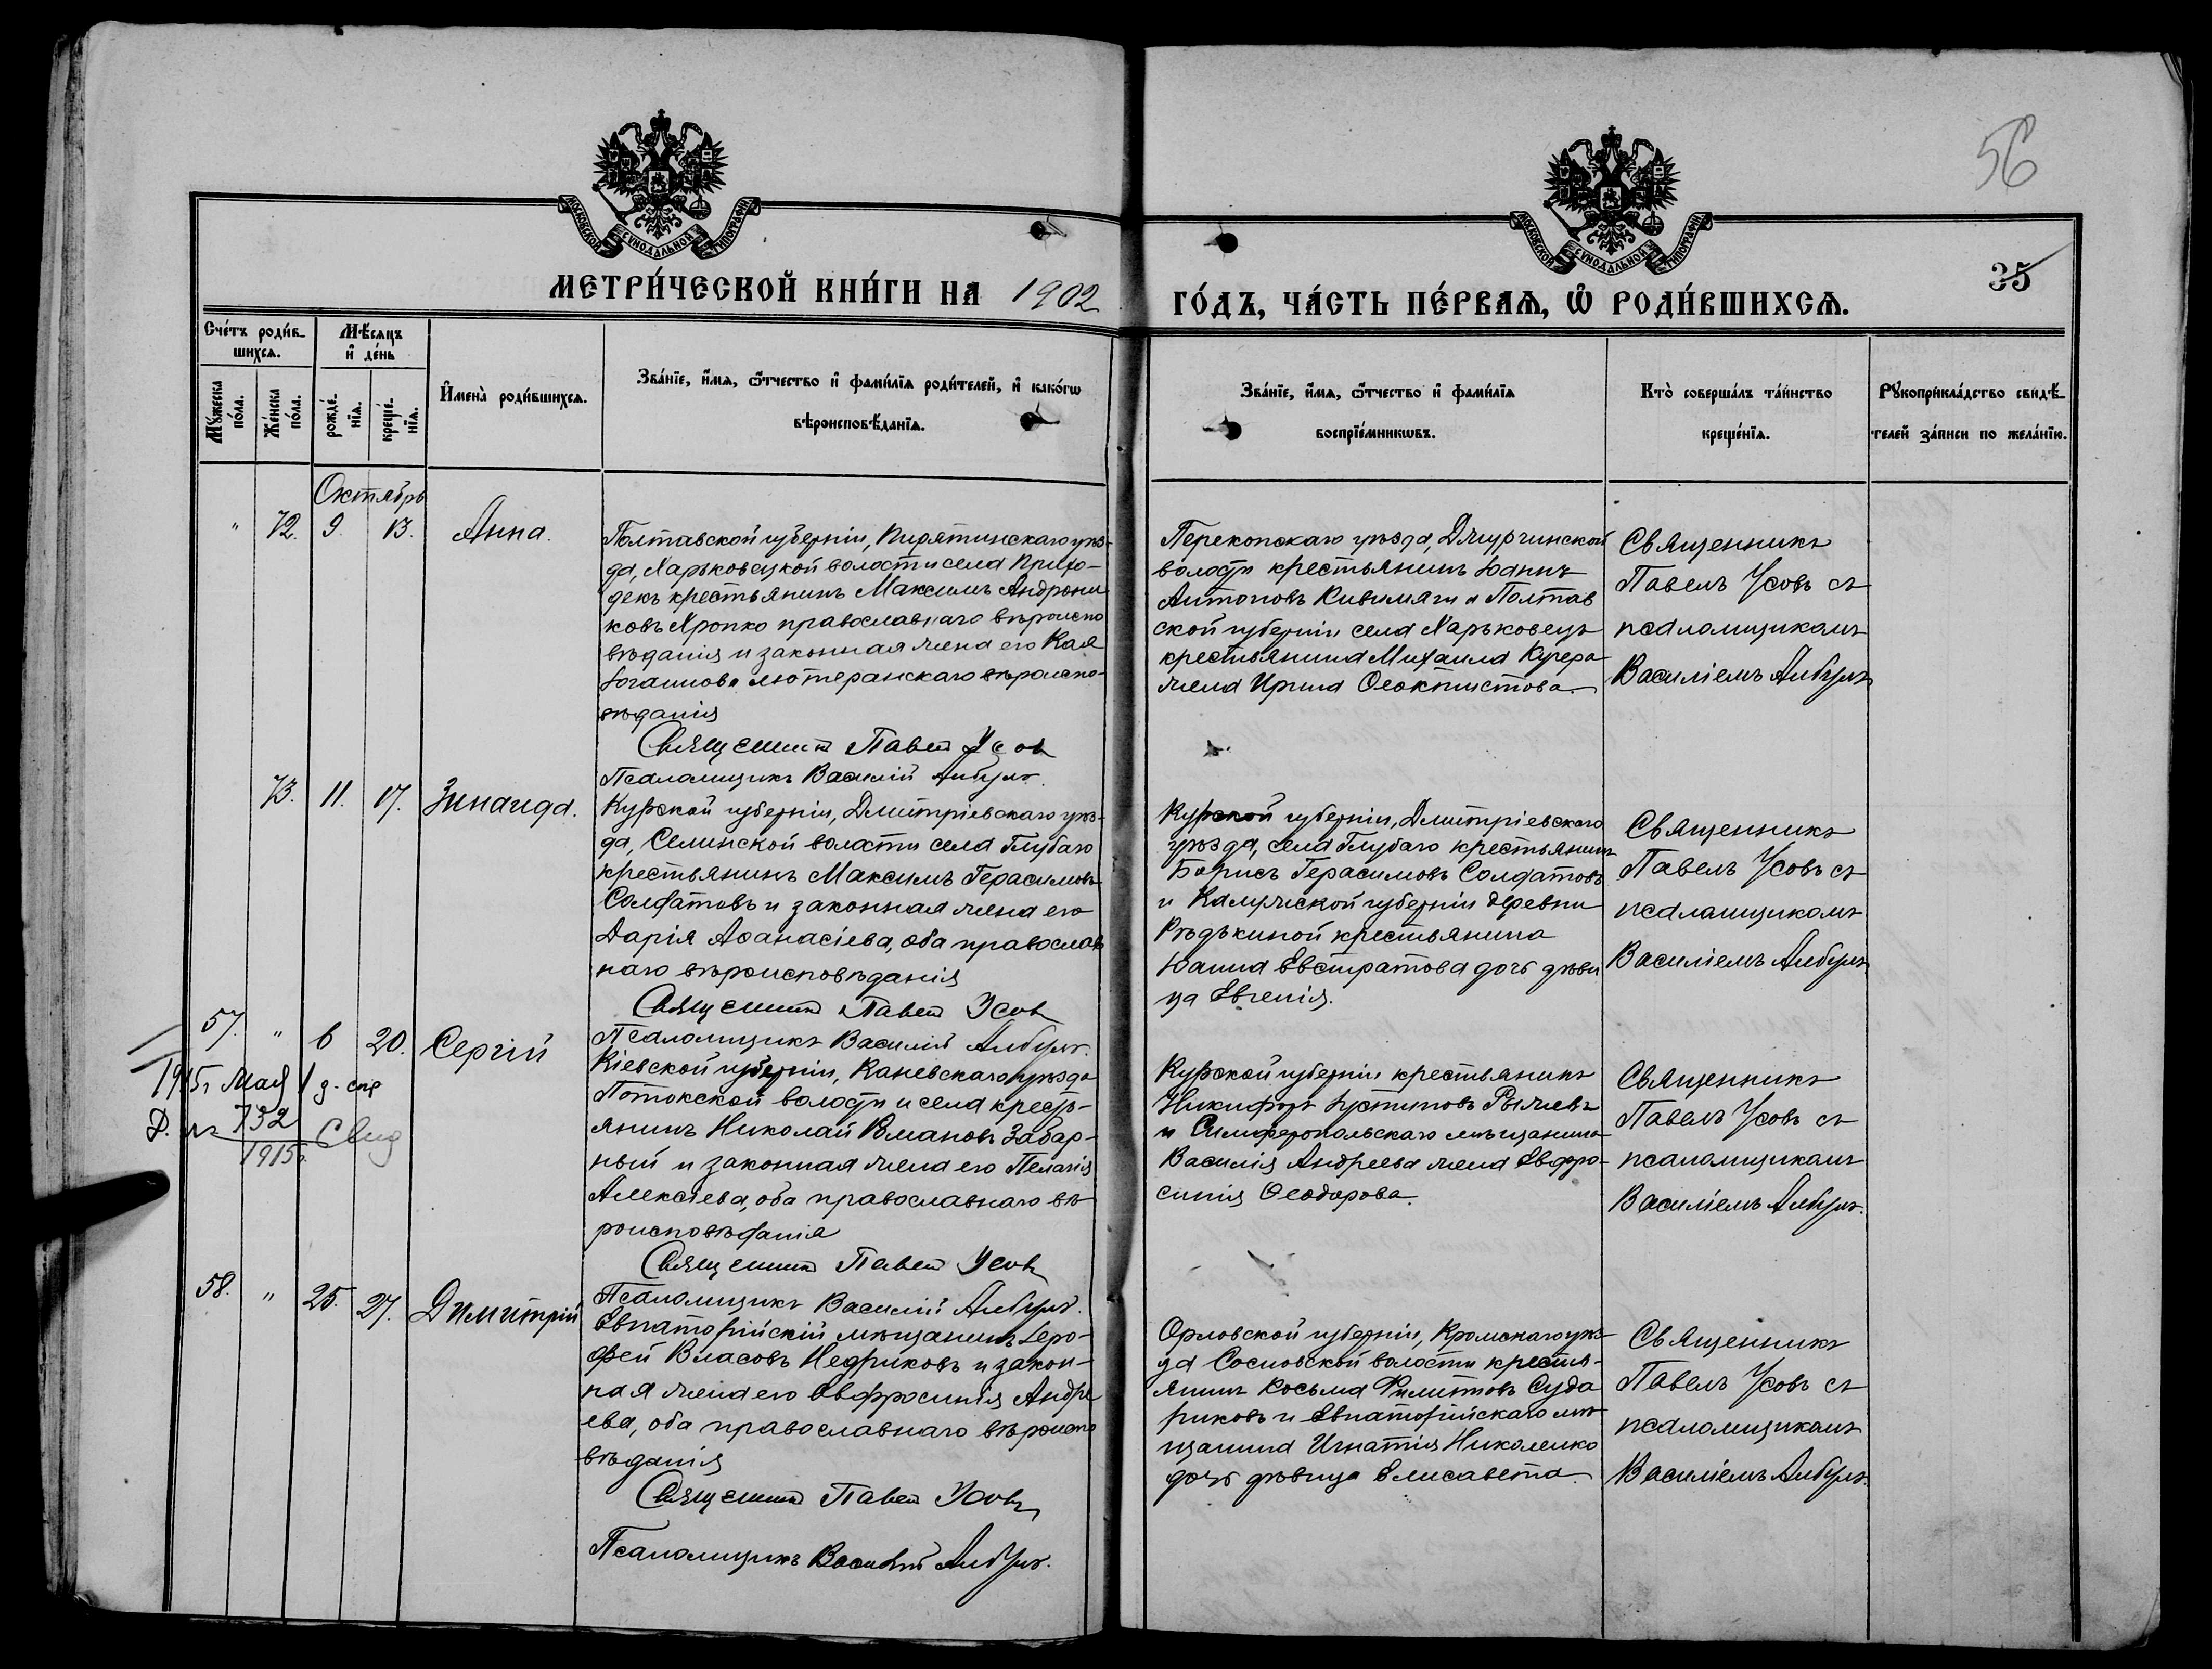 56
МОСКОВСКОЙ СѴНОДАЛЬНОЙ ТИПОГРАФІИ
МОСКОВСКОЙ СѴНОДАЛЬНОЙ ТИПОГРАФІИ
35
МЕТРИ́ЧЕСКОЙ КНИ́ГИ НА 1902
ГО́ДЪ, ЧА́СТЬ ПЕ́РВАѦ, Ѽ РОДИ́ВШИХСѦ.
Сче́тъ роди́в-
шихсѧ.
Мꙋжеска
по́ла.
Же́нска
по́ла.
Мѣ́сѧцъ
и҆ де́нь
рожде́-
нїѧ.
креще́-
нїѧ.
И҆мена̀ роди́вшихсѧ.
Зва́нїе, и҆́мѧ, ѻ҆́тчество и҆ фами́лїѧ роди́телей, и҆ како́гѡ
вѣроисповѣ́данїѧ.
Зва́нїе, и҆́мѧ, ѻ҆́тчество и҆ фами́лїѧ
воспрїе́мникѡвъ.
Кто̀ соверша́лъ та́инство
креще́нїѧ.
Рꙋкоприкла́дство свидѣ́-
телей за́писи по жела́нїю.
Октябрь
" 72. 9. 13. Анна.
Полтавской губерніи, Пирятинскаго уѣз-
да, Харьковецкой волости села Прихо-
декъ крестьянинъ Максимъ Андрони
ковъ Хропко православнаго вѣроиспо
вѣданія и законная жена его Кая
Іоганнова лютеранскаго вѣроиспо-
вѣданія
Священникъ Павелъ Усовъ
Псаломщикъ Василій
Перекопскаго уѣзда, Джурчинской
волости крестьянинъ Іоаннъ
Антоновъ Кивимяги и Полтав
ской губерніи села Харьковецъ
крестьянина Михаила Кучера
жена Ирина Ѳеоктистова
Священникъ
Павелъ Усовъ съ
псаломщикомъ
Василіемъ
73. 11. 17. Зинаида.
Курской губерніи, Дмитріевскаго уѣз-
да, Селинской волости села Глубаго
крестьянинъ Максимъ Герасимовъ
Солдатовъ и законная жена его
Дарія Аѳанасіева, оба православ
наго вѣроисповѣданія
Священникъ Павелъ Усовъ
Псаломщикъ Василій
Курской губерніи, Дмитріевскаго
уѣзда, села Глубаго крестьянинъ
Борисъ Герасимовъ Солдатовъ
и Калужской губерніи деревни
Рѣдькиной крестьянина
Іоанна Евстратова дочь дѣви
ца Евгенія.
Священникъ
Павелъ Усовъ съ
псаломщикомъ
Василіемъ
57. " 6 20. Сергій
1915 г Мая 1 д. спр
732
1915 г. Свид
Кіевской губерніи, Каневскаго уѣзда
Потокской волости и села кресть-
янинъ Николай Романовъ Забар-
ный и законная жена его Пелагія
Алексіева, оба православнаго вѣ
роисповѣданія
Священникъ Павелъ Усовъ
Псаломщикъ Василій
Курской губерніи крестьянинъ
Никифоръ Іустиновъ Рыжевъ
и Симферопольскаго мѣщанина
Василія Андреева жена Евфро-
синія Ѳеодорова.
Священникъ
Павелъ Усовъ съ
псаломщикомъ
Василіемъ
58. " 25. 27. Димитрій
Евпаторійскій мѣщанинъ Іеро-
фей Власовъ Недриковъ и закон-
ная жена его Евфросинія Андре
ева, оба православнаго вѣроиспо
вѣданія
Священникъ Павелъ Усовъ
Псаломщикъ Василій
Орловской губерніи, Кромскаго уѣз-
да Сосновской волости кресть-
янинъ Косьма Филиповъ Суда
риковъ и Евпаторійскаго мѣ
щанина Игнатія Николенко
дочь дѣвица Елисавета
Священникъ
Павелъ Усовъ съ
псаломщикомъ
Василіемъ